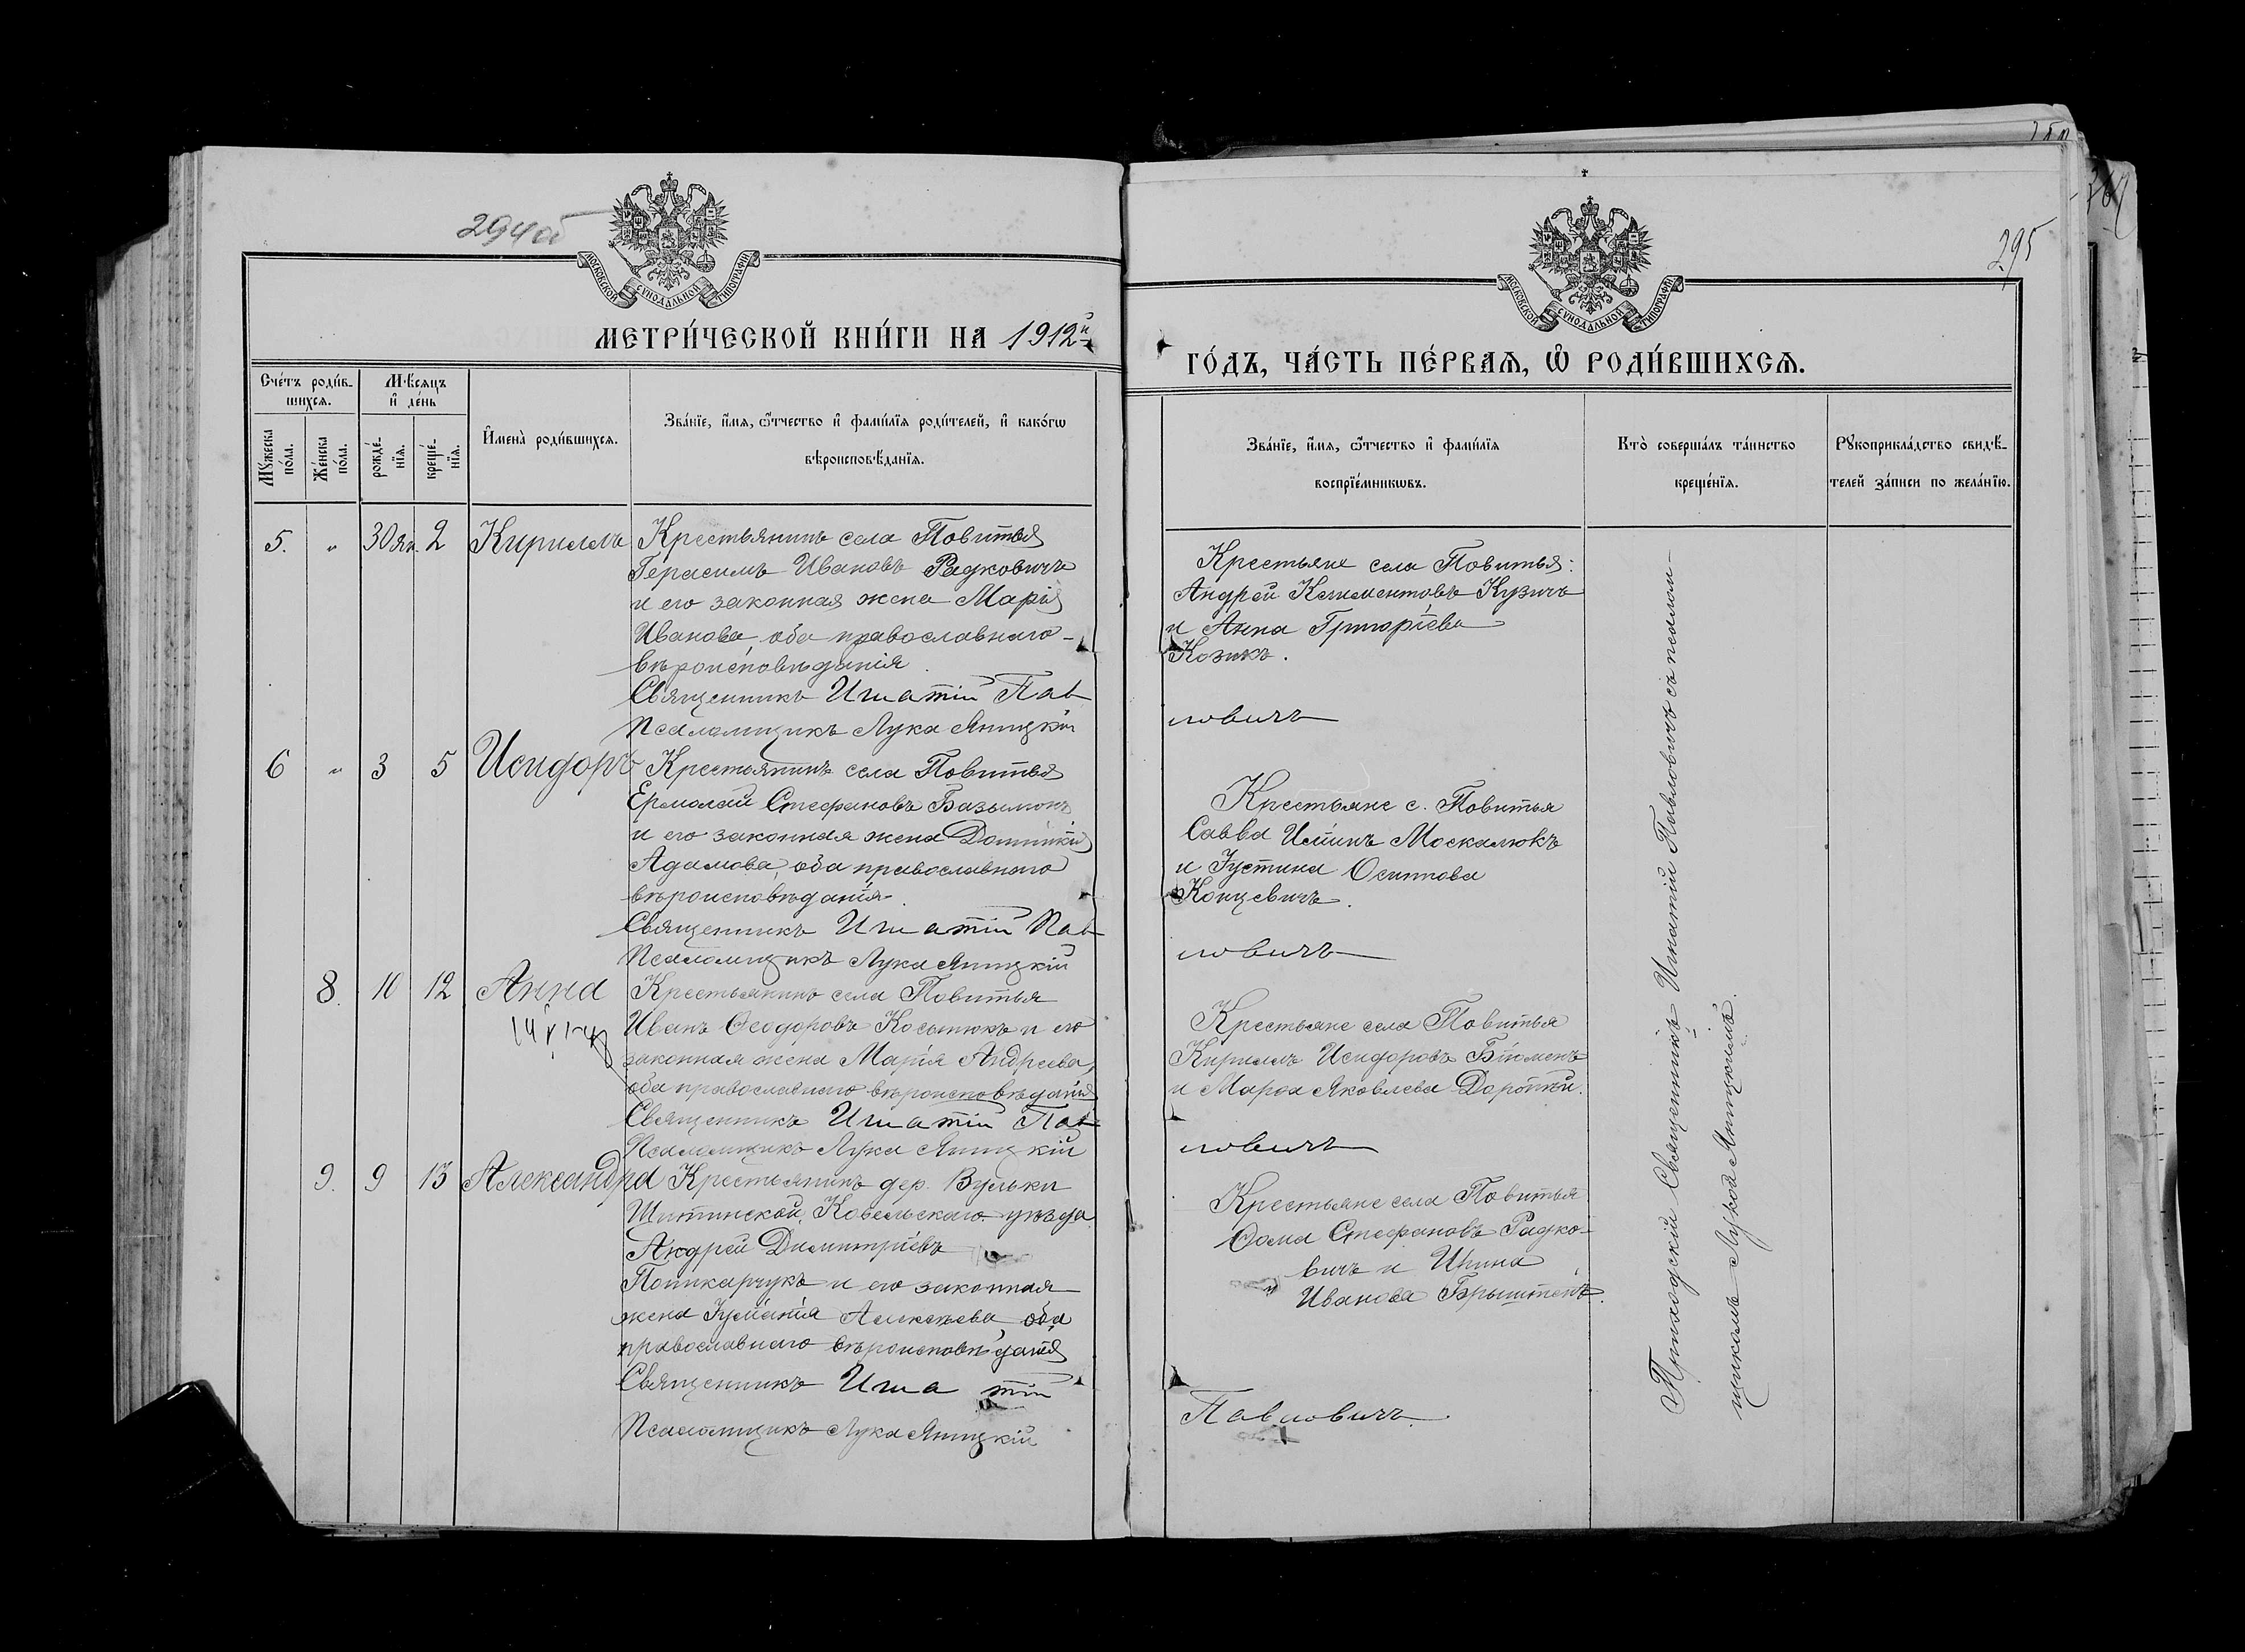 294об
МОСКОВСКОЙ СѴНОДАЛЬНОЙ ТИПОГРАФІИ
МЕТРИ́ЧЕСКОЙ КНИ́ГИ НА 1912й
Сче́тъ роди́в-
шихсѧ.
Мꙋ́жеска
по́ла.
Же́нска
по́ла.
Мѣ́сѧцъ
и҆ де́нь
рожде́-
нїѧ.
креще́-
нїѧ.
И҆мена̀ роди́вшихсѧ.
Зва́нїе, и҆́мѧ, ѻ҆́тчество и҆ фами́лїѧ роди́телей, и҆ како́гѡ
вѣроисповѣ́данїѧ.
5. " 30 ян. 2 Кириллъ Крестьянинъ села Повитья
Герасимъ Ивановъ Радковичъ
и его законная жена Марія
Иванова, оба православнаго
вѣроисповѣданія.
Священникъ Игнатій Пав-
Псаломщикъ Лука Яницкій
6 " 3 5 Исидоръ Крестьянинъ села Повитья
Ермолай Стефановъ Базылюкъ
и его законная жена Домникія
Адамова, оба православнаго
вѣроисповѣданія.
Священникъ Игнатій Пав-
Псаломщикъ Лука Яницкій
8. 10 12 Анна Крестьянинъ села Повитья
Иванъ Ѳеодоровъ Косынюкъ и его
законная жена Марія Андреева,
оба православнаго вѣроисповѣданія
Священникъ Игнатій Пав-
Псаломщикъ Лука Яницкій
9. 9 13 Александра Крестьянинъ дер. Вульки
Щитинской, Ковельскаго уѣзда
Андрей Димитріевъ
Поликарчукъ и его законная
жена Іуліанія Алексѣева, оба
православнаго вѣроисповѣданія
Священникъ Игнатій
Псаломщикъ Лука Яницкій
295
МОСКОВСКОЙ СѴНОДАЛЬНОЙ ТИПОГРАФІИ
ГО́ДЪ, ЧА́СТЬ ПЕ́РВАѦ, Ѽ РОДИ́ВШИХСѦ.
Зва́нїе, и҆́мѧ, ѻ҆́тчество и҆ фами́лїѧ
воспрїе́мникѡвъ.
Кто̀ соверша́лъ та́инство
креще́нїѧ.
Рꙋкоприкла́дство свидѣ́-
телей за́писи по жела́нїю.
Крестьяне села Повитья:
Андрей Климентовъ Кузичъ
и Анна Григоріева
Козикъ.
ловичъ
Крестьяне с. Повитья
Савва Илiинъ Москалюкъ
и Іустина Осиппова
Концевичъ.
ловичъ
Крестьяне села Повитья
Кириллъ Исидоровъ
и Марѳа Яковлева
ловичъ
Крестьяне села Повитья
Ѳома Стефановъ Радко-
вичъ и Ирина
Иванова
Павловичъ.
Приходскій Священникъ Игнатій Павловичъ съ псалом-
щикомъ Лукой Яницкимъ.